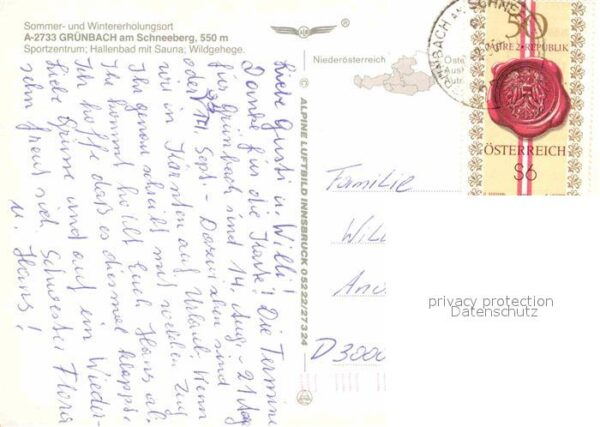 Sommer- und Wintererholungsort
A-2733 GRÜNBACH am Schneeberg, 550 m
Sportzentrum; Hallenbad mit Sauna; Wildgehege.
Liebe Gusti u. Willi!
Danke für die Karte! Die Termine
für Grünbach sind 14. Aug. - 21. Aug
oder Sept. - Dazwischen sind
wir in Kärnten auf Urlaub. Wenn
Ihr genau schreibt mit welchen Zug
Ihr kommt holt Euch Hans ab.
Ich hoffe daß es diesmal klappt.
Liebe Grüße und auf ein Wieder-
sehn freut sich Schwester Flora
u. Hans!
© ALPINE LUFTBILD INNSBRUCK 05222/27324
Niederösterreich
GRÜNBACH AM SCHNEE
50
JAHRE 2. REPUBLIK
ÖSTERREICH
S6
Familie
D 3000
privacy protection
Datenschutz